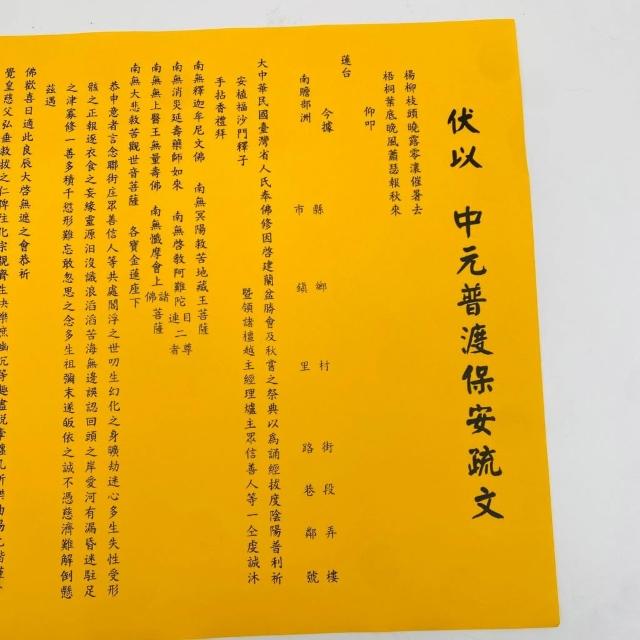 伏以 中元普渡保安疏文
楊柳枝頭曉露零瀼催暑去
梧桐葉底晚風蕭瑟報秋來
仰叩
蓮台
今據
南瞻部洲
縣 鄉 村 街 段 弄 樓
市 鎮 里 路 巷 鄰 號
大中華民國臺灣省人民奉佛修因啓建蘭盆勝會及秋嘗之祭典以為誦經拔度陰陽普利祈
安植福沙門釋子 暨領諸檀越主經理爐主眾信善人等一仝虔誠沐
手拈香禮拜
南無釋迦牟尼文佛 南無冥陽救苦地藏王菩薩
南無消災延壽藥師如來 南無啓教阿難陀目連二尊者
南無無上醫王無量壽佛 南無懺摩會上諸佛菩薩
南無大悲救苦觀世音菩薩 各寶金蓮座下
恭申意者言念聯街庄眾善信人等共處閻浮之世叨生幻化之身曠劫迷心多生失性受形
骸之正報逐衣食之妄緣靈源汨沒識浪滔滔苦海無邊誤認回頭之岸愛河有漏昏迷駐足
之津寡修一善多積千愆形難忘敢忽思之念多生祖彌末遂皈依之誠不憑慈濟難解倒懸
茲遇
佛歡喜日適此良辰大啓無遮之會恭祈
覺皇慈父弘垂救拔之仁